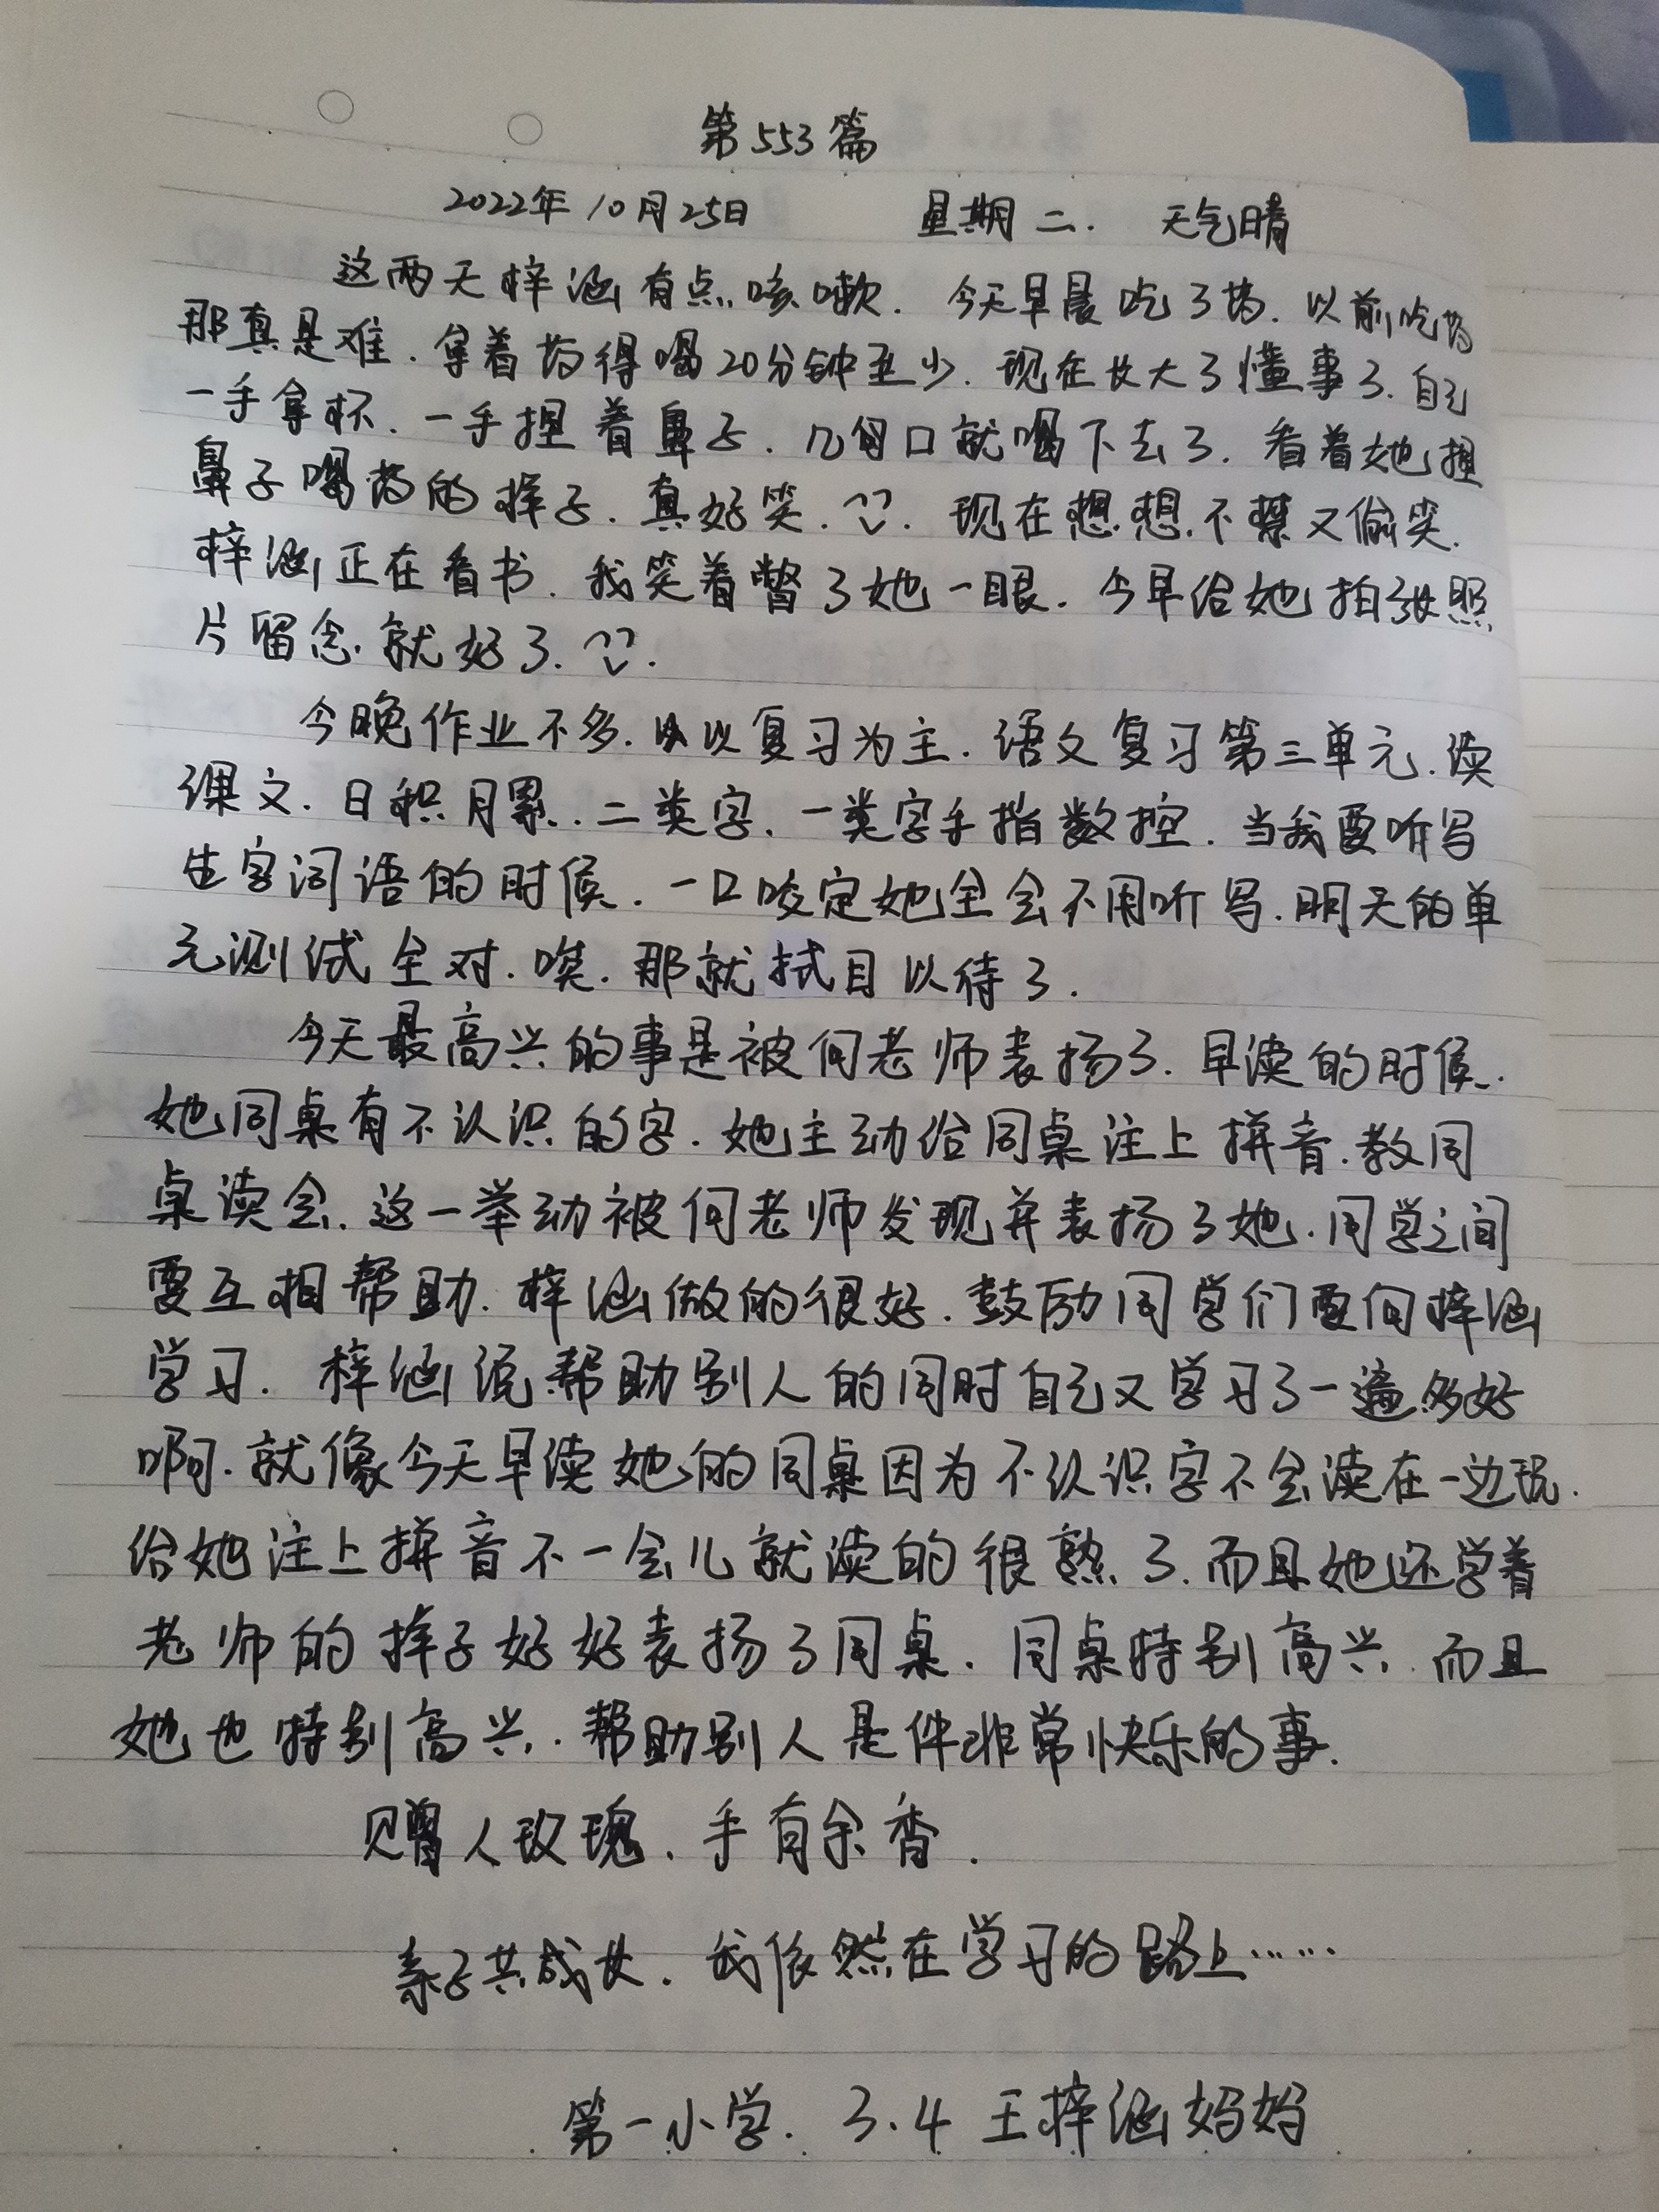 第553篇
2022年10月25日 星期二. 天气晴
这两天梓涵有点咳嗽. 今天早晨吃了药. 以前吃药
那真是难. 拿着药得喝20分钟至少. 现在长大了懂事了. 自己
一手拿杯. 一手捏着鼻子. 几大口就喝下去了. 看着她捏
鼻子喝药的样子. 真好笑. 现在想想. 不禁又偷笑.
梓涵正在看书. 我笑着瞥了她一眼. 今早给她拍张照
片留念. 就好了.
今晚作业不多. 以复习为主. 语文复习第三单元. 读
课文. 日积月累. 二类字. 一类字手指数控. 当我要听写
生字词语的时候. 一口咬定她全会不用听写. 明天的单
元测试全对. 唉. 那就拭目以待了.
今天最高兴的事是被何老师表扬了. 早读的时候.
她同桌有不认识的字. 她主动给同桌注上拼音. 教同
桌读会. 这一举动被何老师发现并表扬了她. 同学之间
要互相帮助. 梓涵做的很好. 鼓励同学们要向梓涵
学习. 梓涵说帮助别人的同时自己又学习了一遍多好
啊. 就像今天早读她的同桌因为不认识字不会读在一边玩.
给她注上拼音不一会儿就读的很熟了. 而且她还学着
老师的样子好好表扬了同桌. 同桌特别高兴. 而且
她也特别高兴. 帮助别人是件非常快乐的事.
赠人玫瑰. 手有余香.
亲子共成长. 我依然在学习的路上……
第一小学. 3.4 王梓涵妈妈